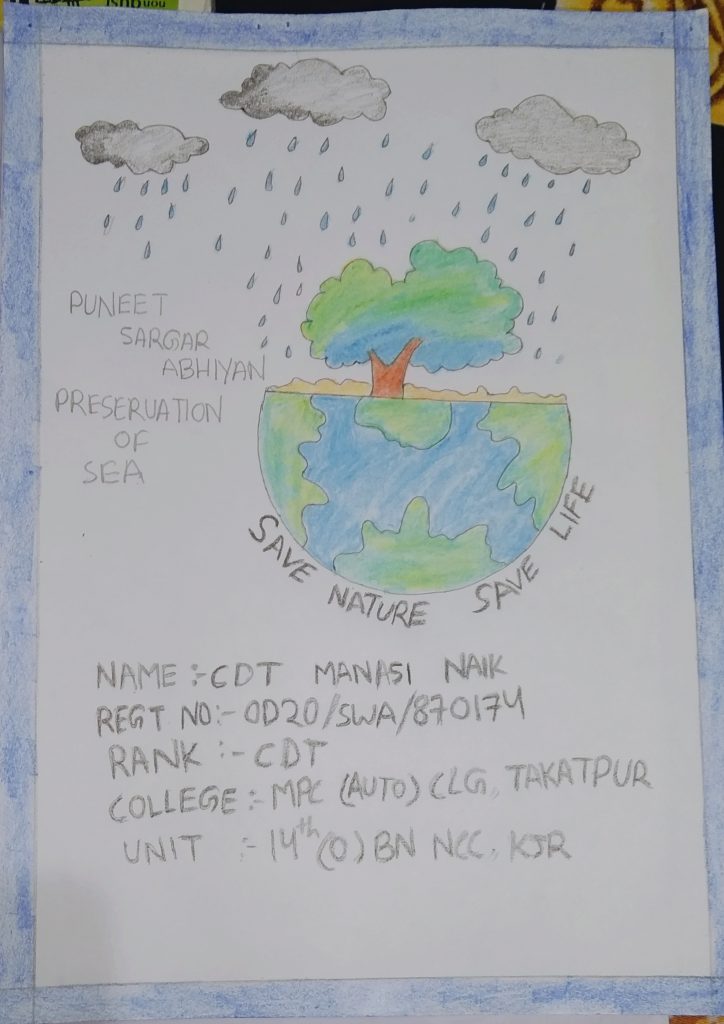 PUNEET
SARGAR
ABHIYAN
PRESERVATION
OF
SEA
SAVE NATURE SAVE LIFE
NAME :- CDT MANASI NAIK
REGT NO:- OD20/SWA/870174
RANK :- CDT
COLLEGE :- MPC (AUTO) CLG, TAKATPUR
UNIT :- 14th (O) BN NCC, KJR